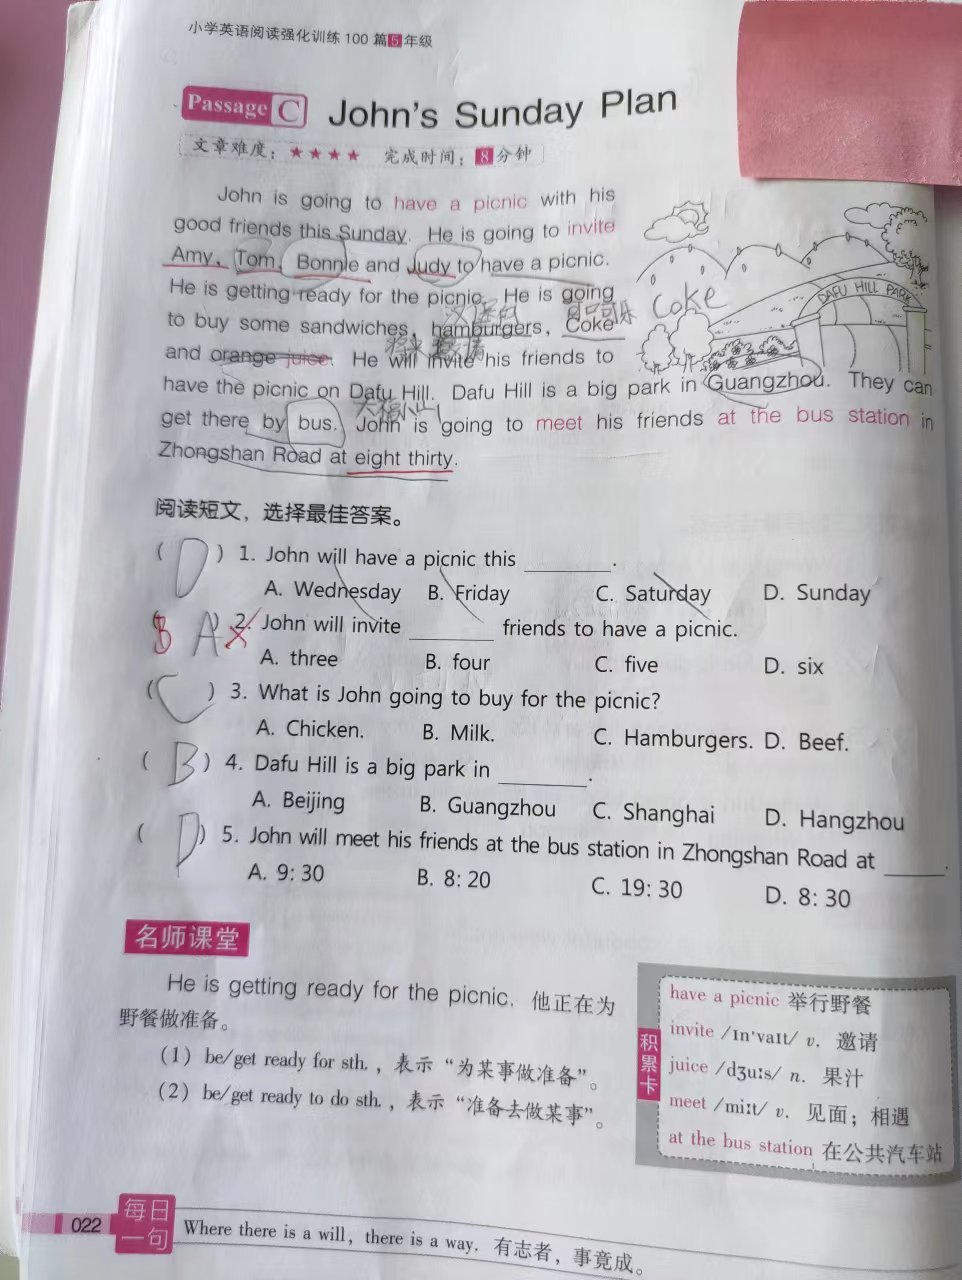 小学英语阅读强化训练100篇5年级
Passage C John's Sunday Plan
文章难度：★★★★ 完成时间：8分钟
John is going to have a picnic with his
good friends this Sunday. He is going to invite
Amy, Tom, Bonnie and Judy to have a picnic.
He is getting ready for the picnic. He is going
汉堡包 可口可乐 Coke
to buy some sandwiches, hamburgers, Coke
将来 邀请
and orange juice. He will invite his friends to
DAFU HILL PARK
have the picnic on Dafu Hill. Dafu Hill is a big park in Guangzhou. They can
大福小山
get there by bus. John is going to meet his friends at the bus station in
Zhongshan Road at eight thirty.
阅读短文，选择最佳答案。
( D ) 1. John will have a picnic this ________.
A. Wednesday B. Friday C. Saturday D. Sunday
B A × 2. John will invite ________ friends to have a picnic.
A. three B. four C. five D. six
( C ) 3. What is John going to buy for the picnic?
A. Chicken. B. Milk. C. Hamburgers. D. Beef.
( B ) 4. Dafu Hill is a big park in ________.
A. Beijing B. Guangzhou C. Shanghai D. Hangzhou
( D ) 5. John will meet his friends at the bus station in Zhongshan Road at ______.
A. 9: 30 B. 8: 20 C. 19: 30 D. 8: 30
名师课堂
He is getting ready for the picnic. 他正在为
野餐做准备。
(1) be/get ready for sth. , 表示“为某事做准备”。
(2) be/get ready to do sth. , 表示“准备去做某事”。
积累卡
have a picnic 举行野餐
invite /ɪn'vaɪt/ v. 邀请
juice /dʒuːs/ n. 果汁
meet /miːt/ v. 见面；相遇
at the bus station 在公共汽车站
022 每日一句 Where there is a will, there is a way. 有志者，事竟成。